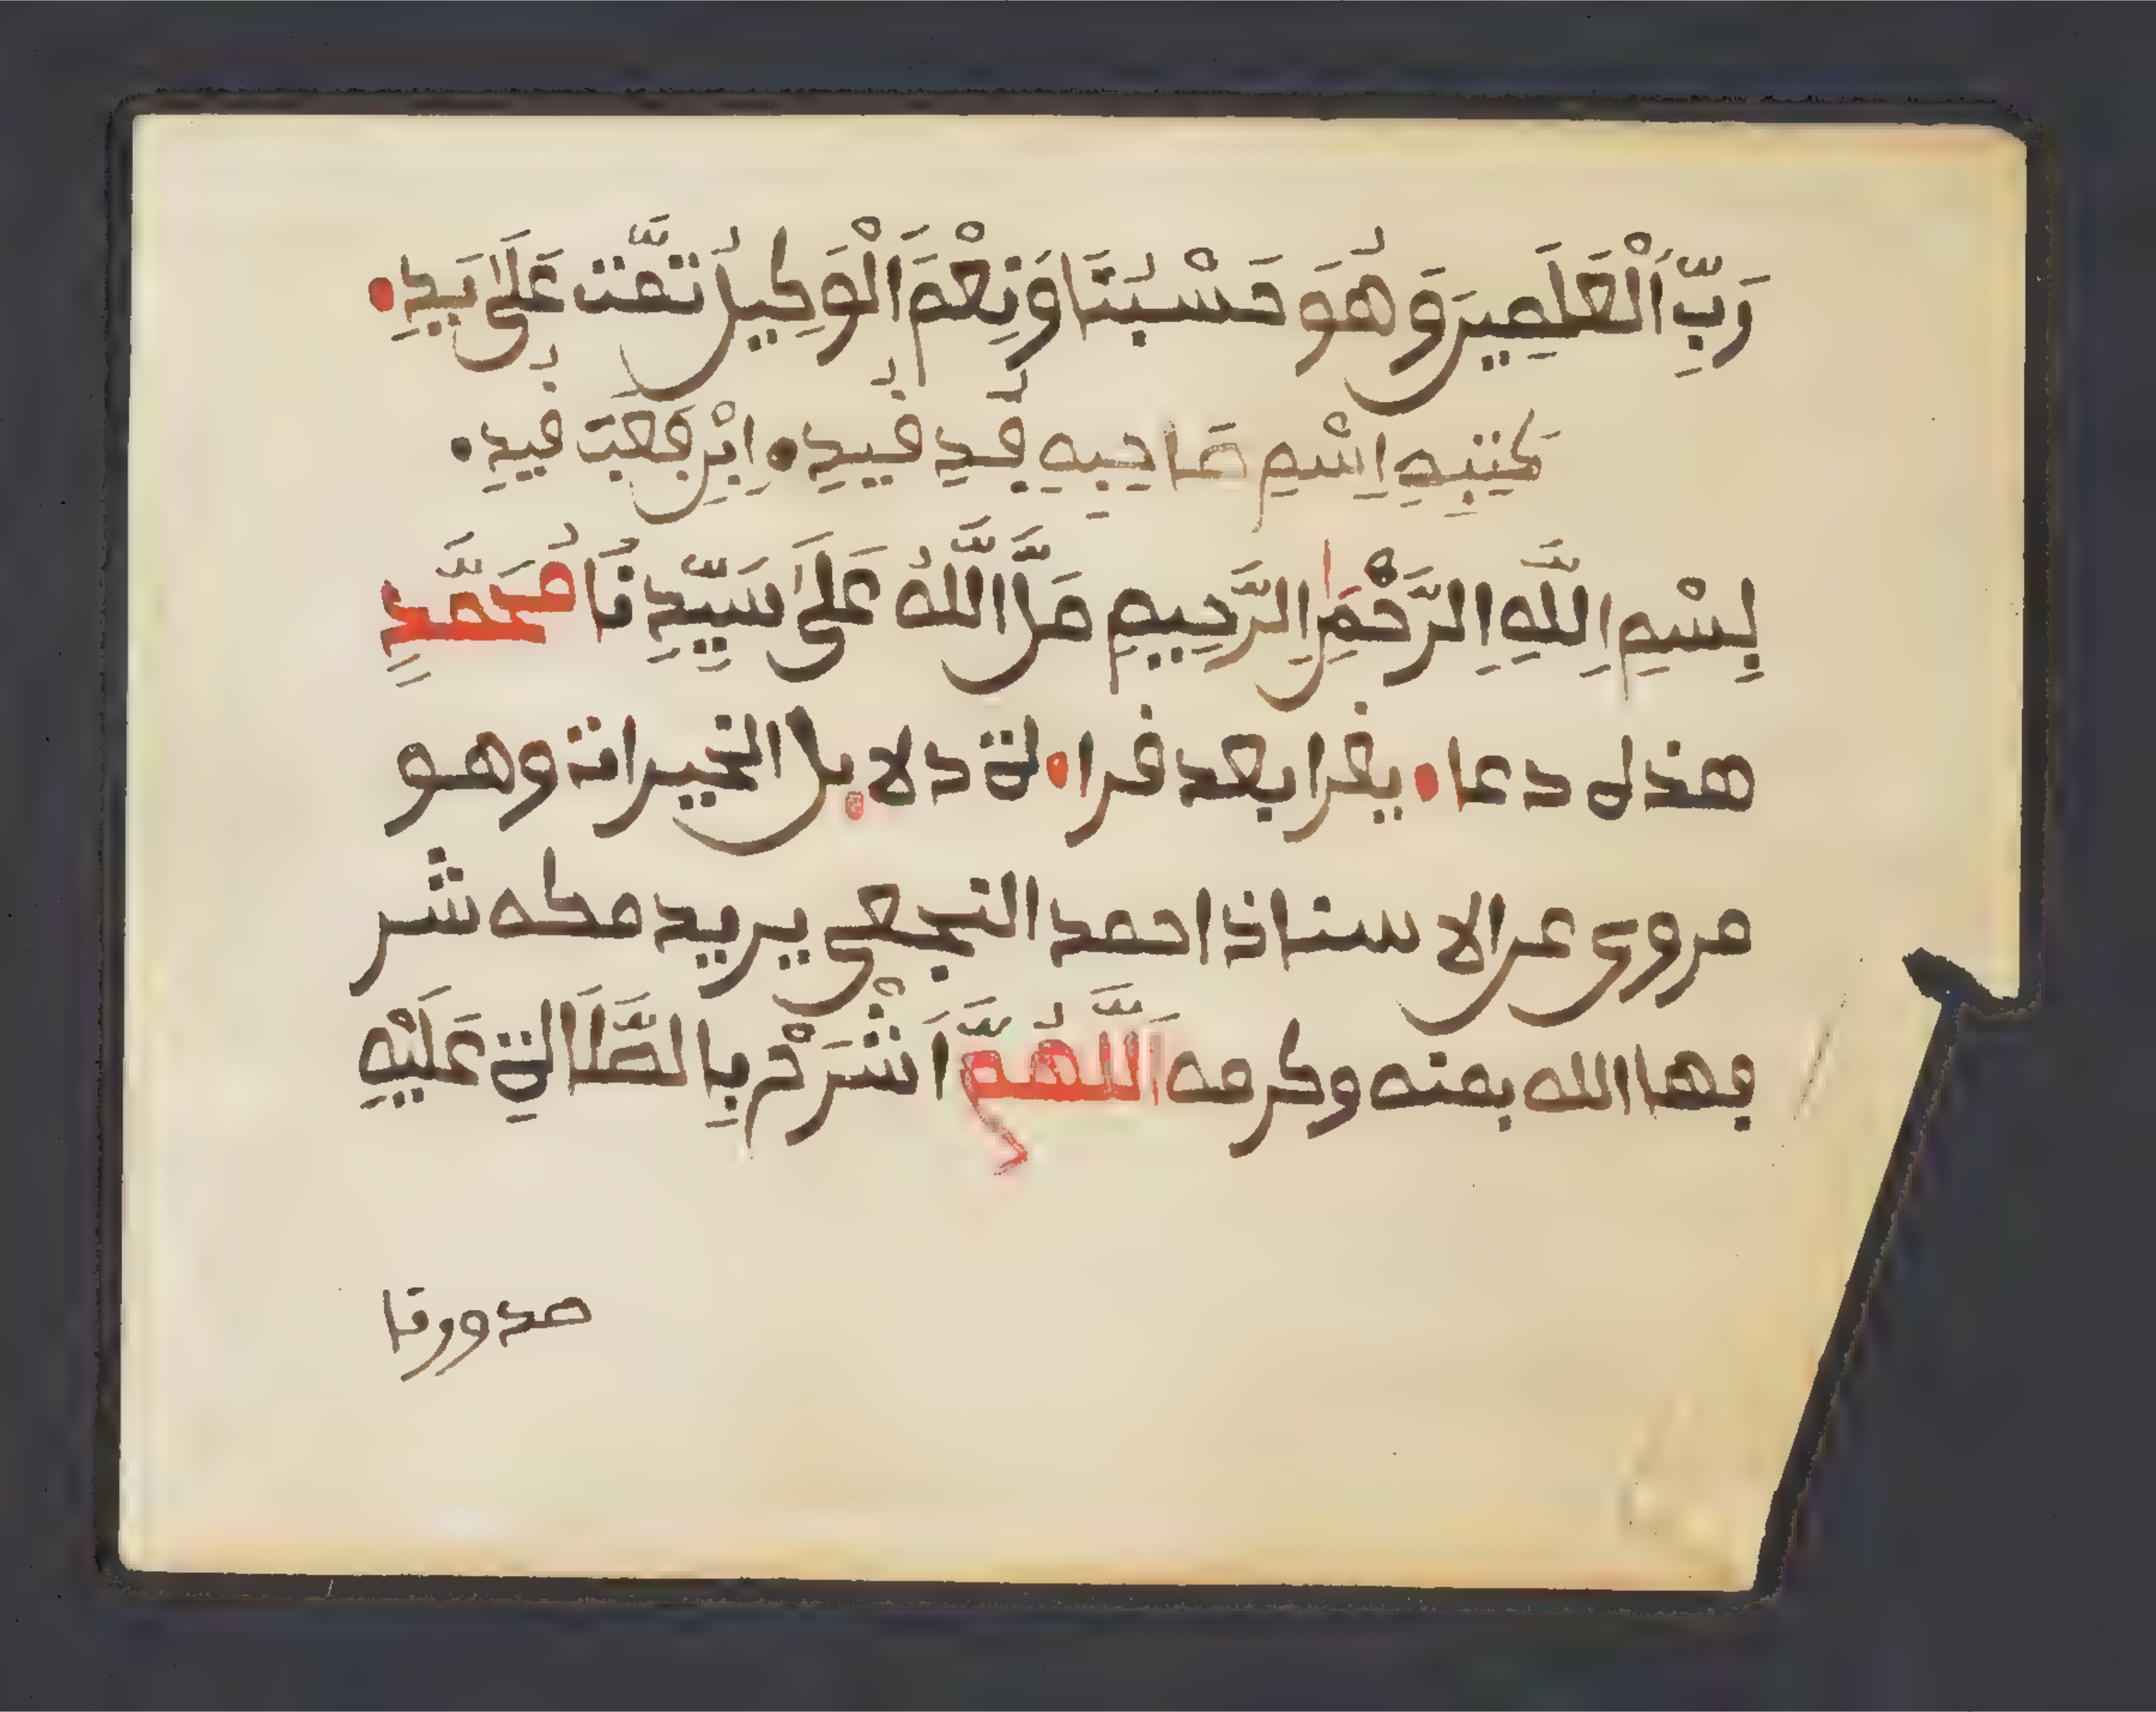 رَبِّ اَلْعَلَمِينَ وَهُوَ حَسْبُنَا وَنِعْمَ اَلْوَكِيلُ تمَّت عَلَىٰ يَدِ
كَتِبِهِ اِسْمِ صَاحِبِهِ فَدِ فيدِ اِبْن فَعَت فيدِ
بِسْمِ اِللَّهِ اِلرَّحْمَٰنِ اِلرَّحِيمِ صَلَّا اللَّهُ عَلَىٰ سَيِّدِنَا مُحَمَّدِ
هذه دعاء يقرا بعد قراءة دلايل الخيرات وهو
مروي عن الاستاذ احمد النجعي يريد مكه شر
فها الله بمنه وكرمه اَللَّهُمَّ اَشْرَحْ بِالصَّلَاةِ عَلَيْهِ
صدورنا